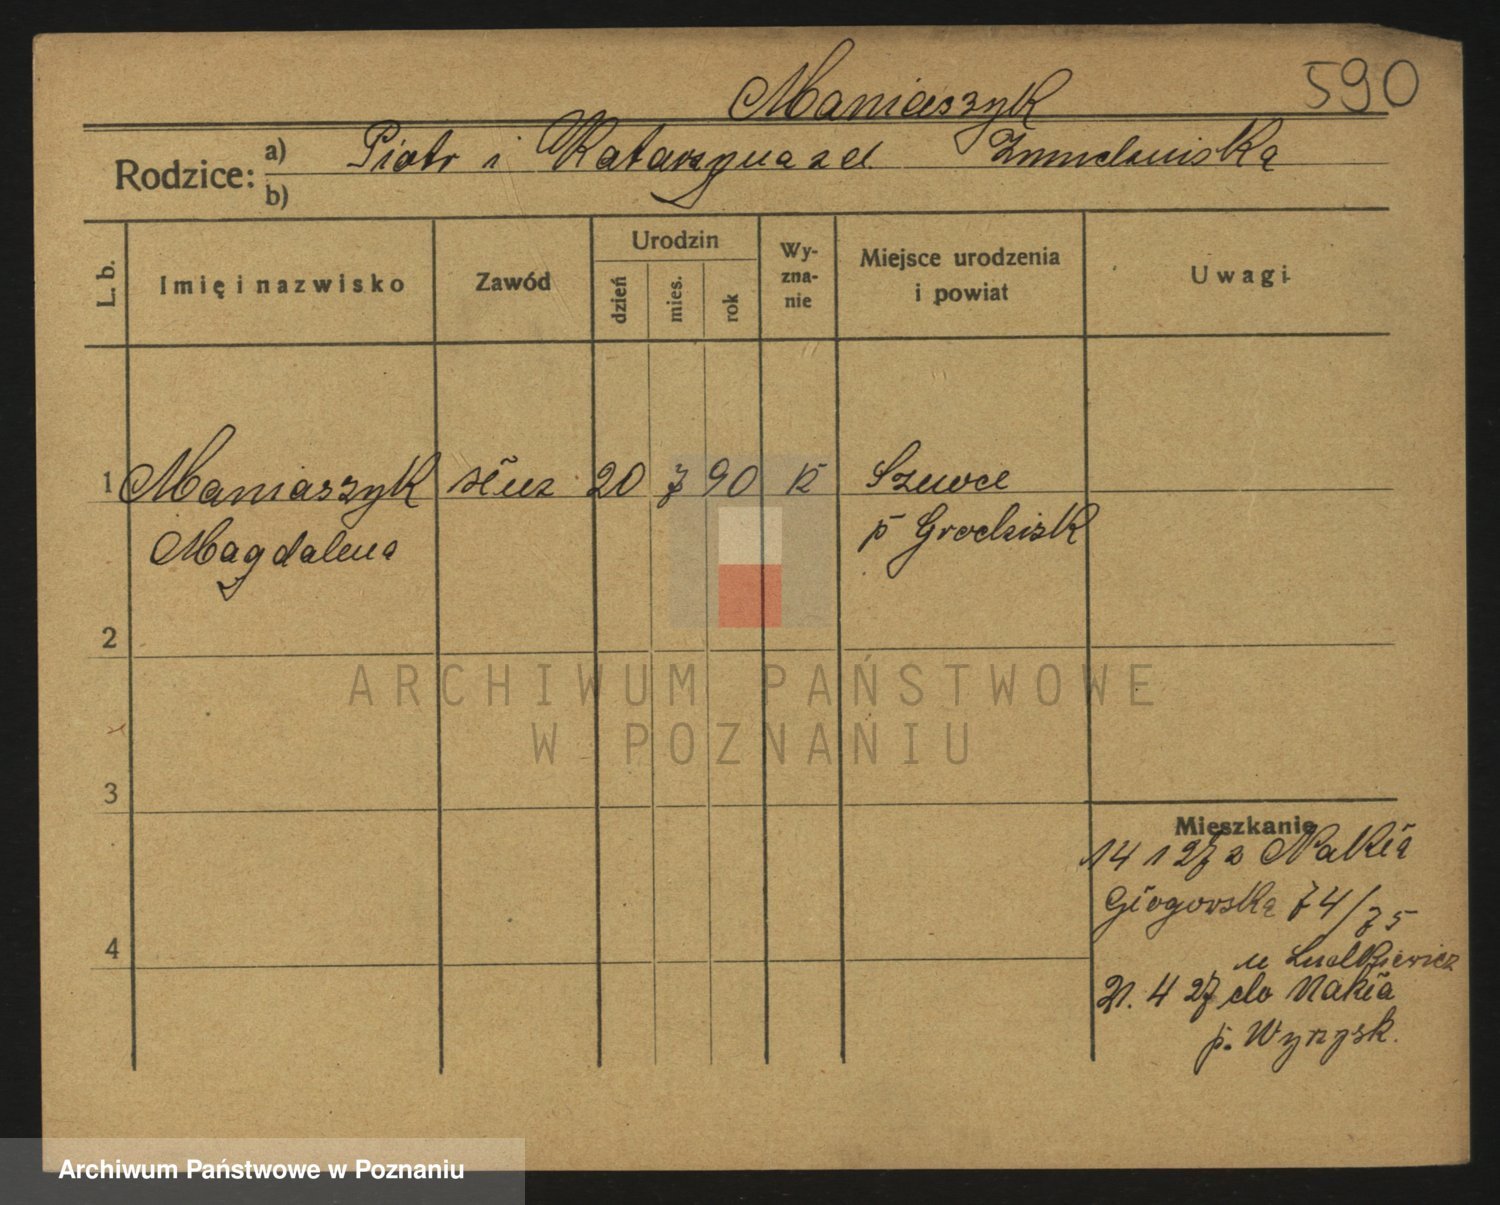 590
Maniaszyk
Rodzice: a) Piotr i Katarzyna z d.
b)
L. b. Imię i nazwisko Zawód Urodzin dzień mies. rok Wyznanie Miejsce urodzenia i powiat Uwagi
1 Maniaszyk służ 20 7 90 k Szewce
Magdalena p Grodzisk
2
3
4
Mieszkanie
14 1 27 z Nakła
Głogowska 74/75
u Ludkiewicz
21. 4 27 do Nakła
p. Wyrzysk.
ARCHIWUM PAŃSTWOWE
W POZNANIU
Archiwum Państwowe w Poznaniu